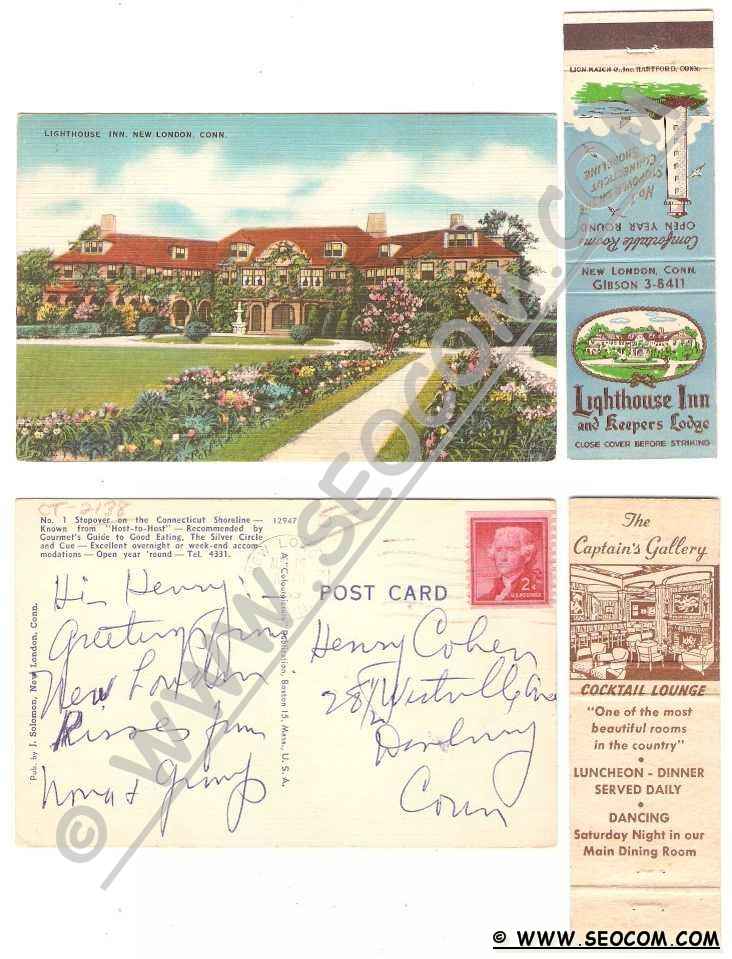 LIGHTHOUSE INN, NEW LONDON, CONN.
LION MATCH C., Inc. HARTFORD, CONN.
No. 1 STOPOVER ON THE
CONNECTICUT
SHORELINE
OPEN YEAR ROUND
Comfortable Rooms
NEW LONDON, CONN.
GIBSON 3-8411
Lighthouse Inn
and Keepers Lodge
CLOSE COVER BEFORE STRIKING
CT-2138
No. 1 Stopover on the Connecticut Shoreline —
Known from "Host-to-Host" — Recommended by
Gourmet's Guide to Good Eating, The Silver Circle
and Cue — Excellent overnight or week-end accom-
modations — Open year 'round — Tel. 4331.
12947
Pub. by J. Solomon, New London, Conn.
A "Colourpicture" Publication, Boston 15, Mass., U.S.A.
POST CARD
2¢
U.S. POSTAGE
Hi Henry:—
Greetings from
New London
Kisses from
Nona & Gramp
Henry Cohen
28½ Westville Ave
Danbury
Conn
The
Captain's Gallery
COCKTAIL LOUNGE
"One of the most
beautiful rooms
in the country"
•
LUNCHEON - DINNER
SERVED DAILY
•
DANCING
Saturday Night in our
Main Dining Room
© WWW.SEOCOM.COM
© WWW.SEOCOM.COM